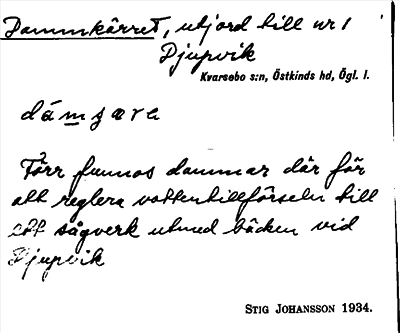 Dammkärret, utjord till nr 1
Djupvik
Kvarsebo s:n, Östkinds hd, Ögl. l.
Förr funnos dammar där för
att reglera vattentillförseln till
ett sågverk utmed bäcken vid
Djupvik
STIG JOHANSSON 1934.